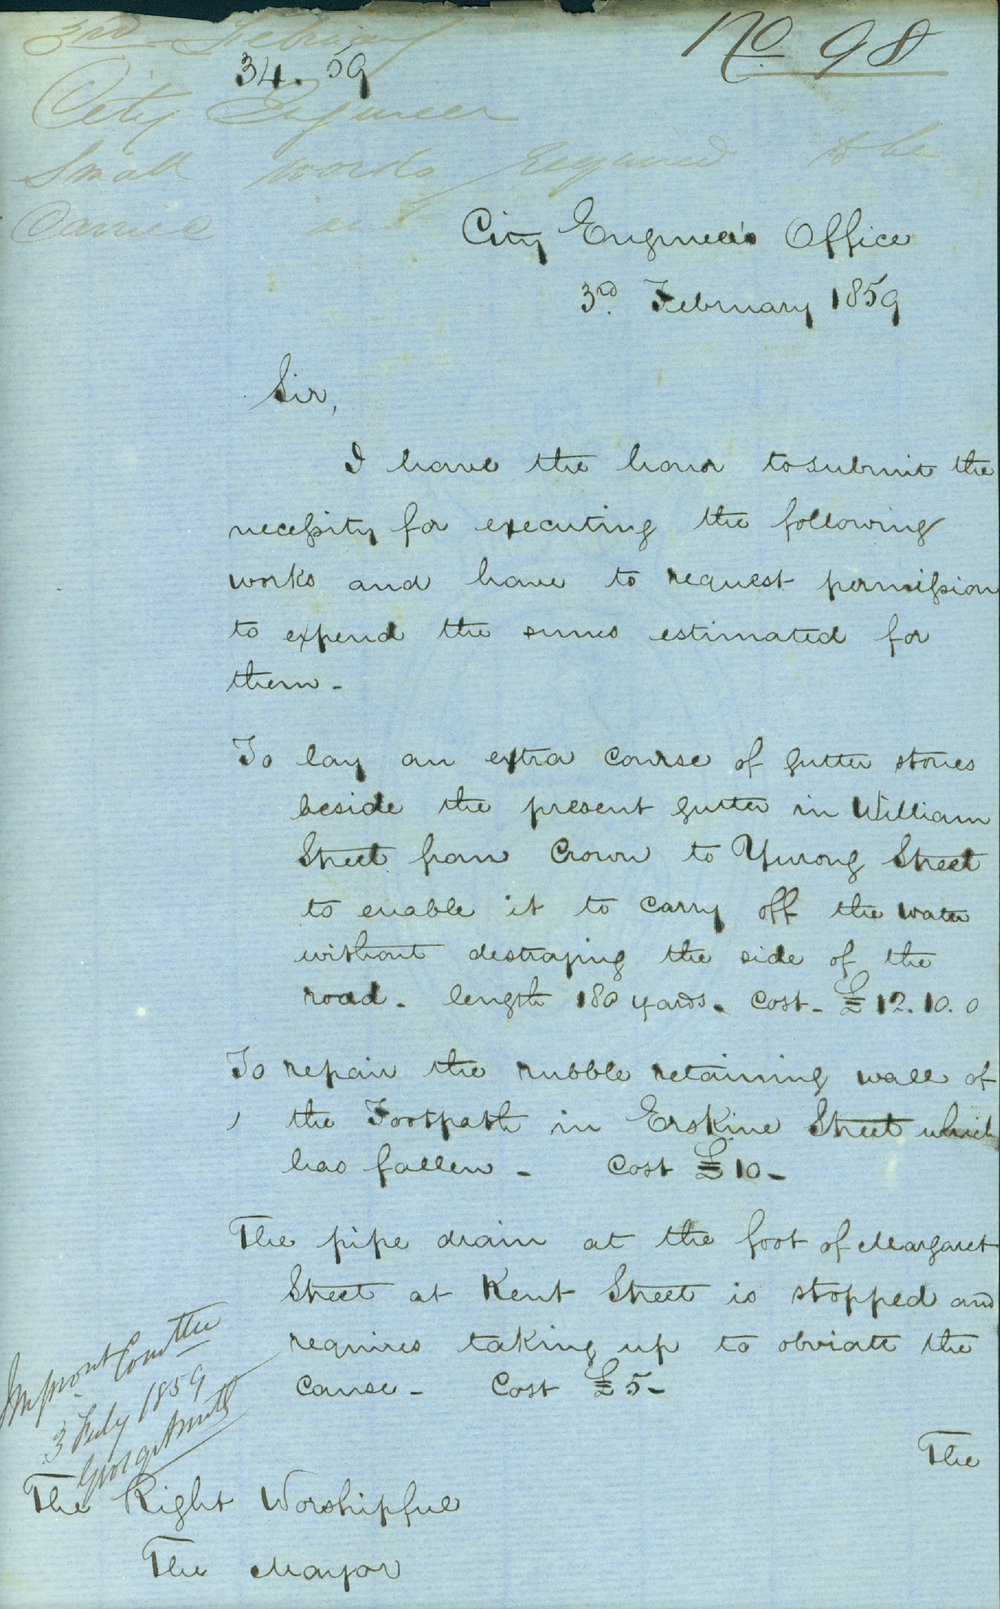 3rd February
No 98
34.59
City Engineer
Small works required to be
Carried out
City Engineer's Office
3rd February 1859
Sir,
I have the honor to submit the
necessity for executing the following
works and have to request permission
to expend the sums estimated for
them -
To lay an extra course of gutter stones
beside the present gutter in William
Street from Crown to Yurong Street
to enable it to carry off the water
without destroying the side of the
road - length 180 yards - Cost - £12.10.0
To repair the rubble retaining wall of
the Footpath in Erskine Street which
has fallen - Cost £10 -
The pipe drain at the foot of Margaret
Street at Kent Street is stopped and
requires taking up to obviate the
cause - Cost £5 -
Improvt Comttee
3 Feby 1859
George Smith
The
The Right Worshipful
The Mayor